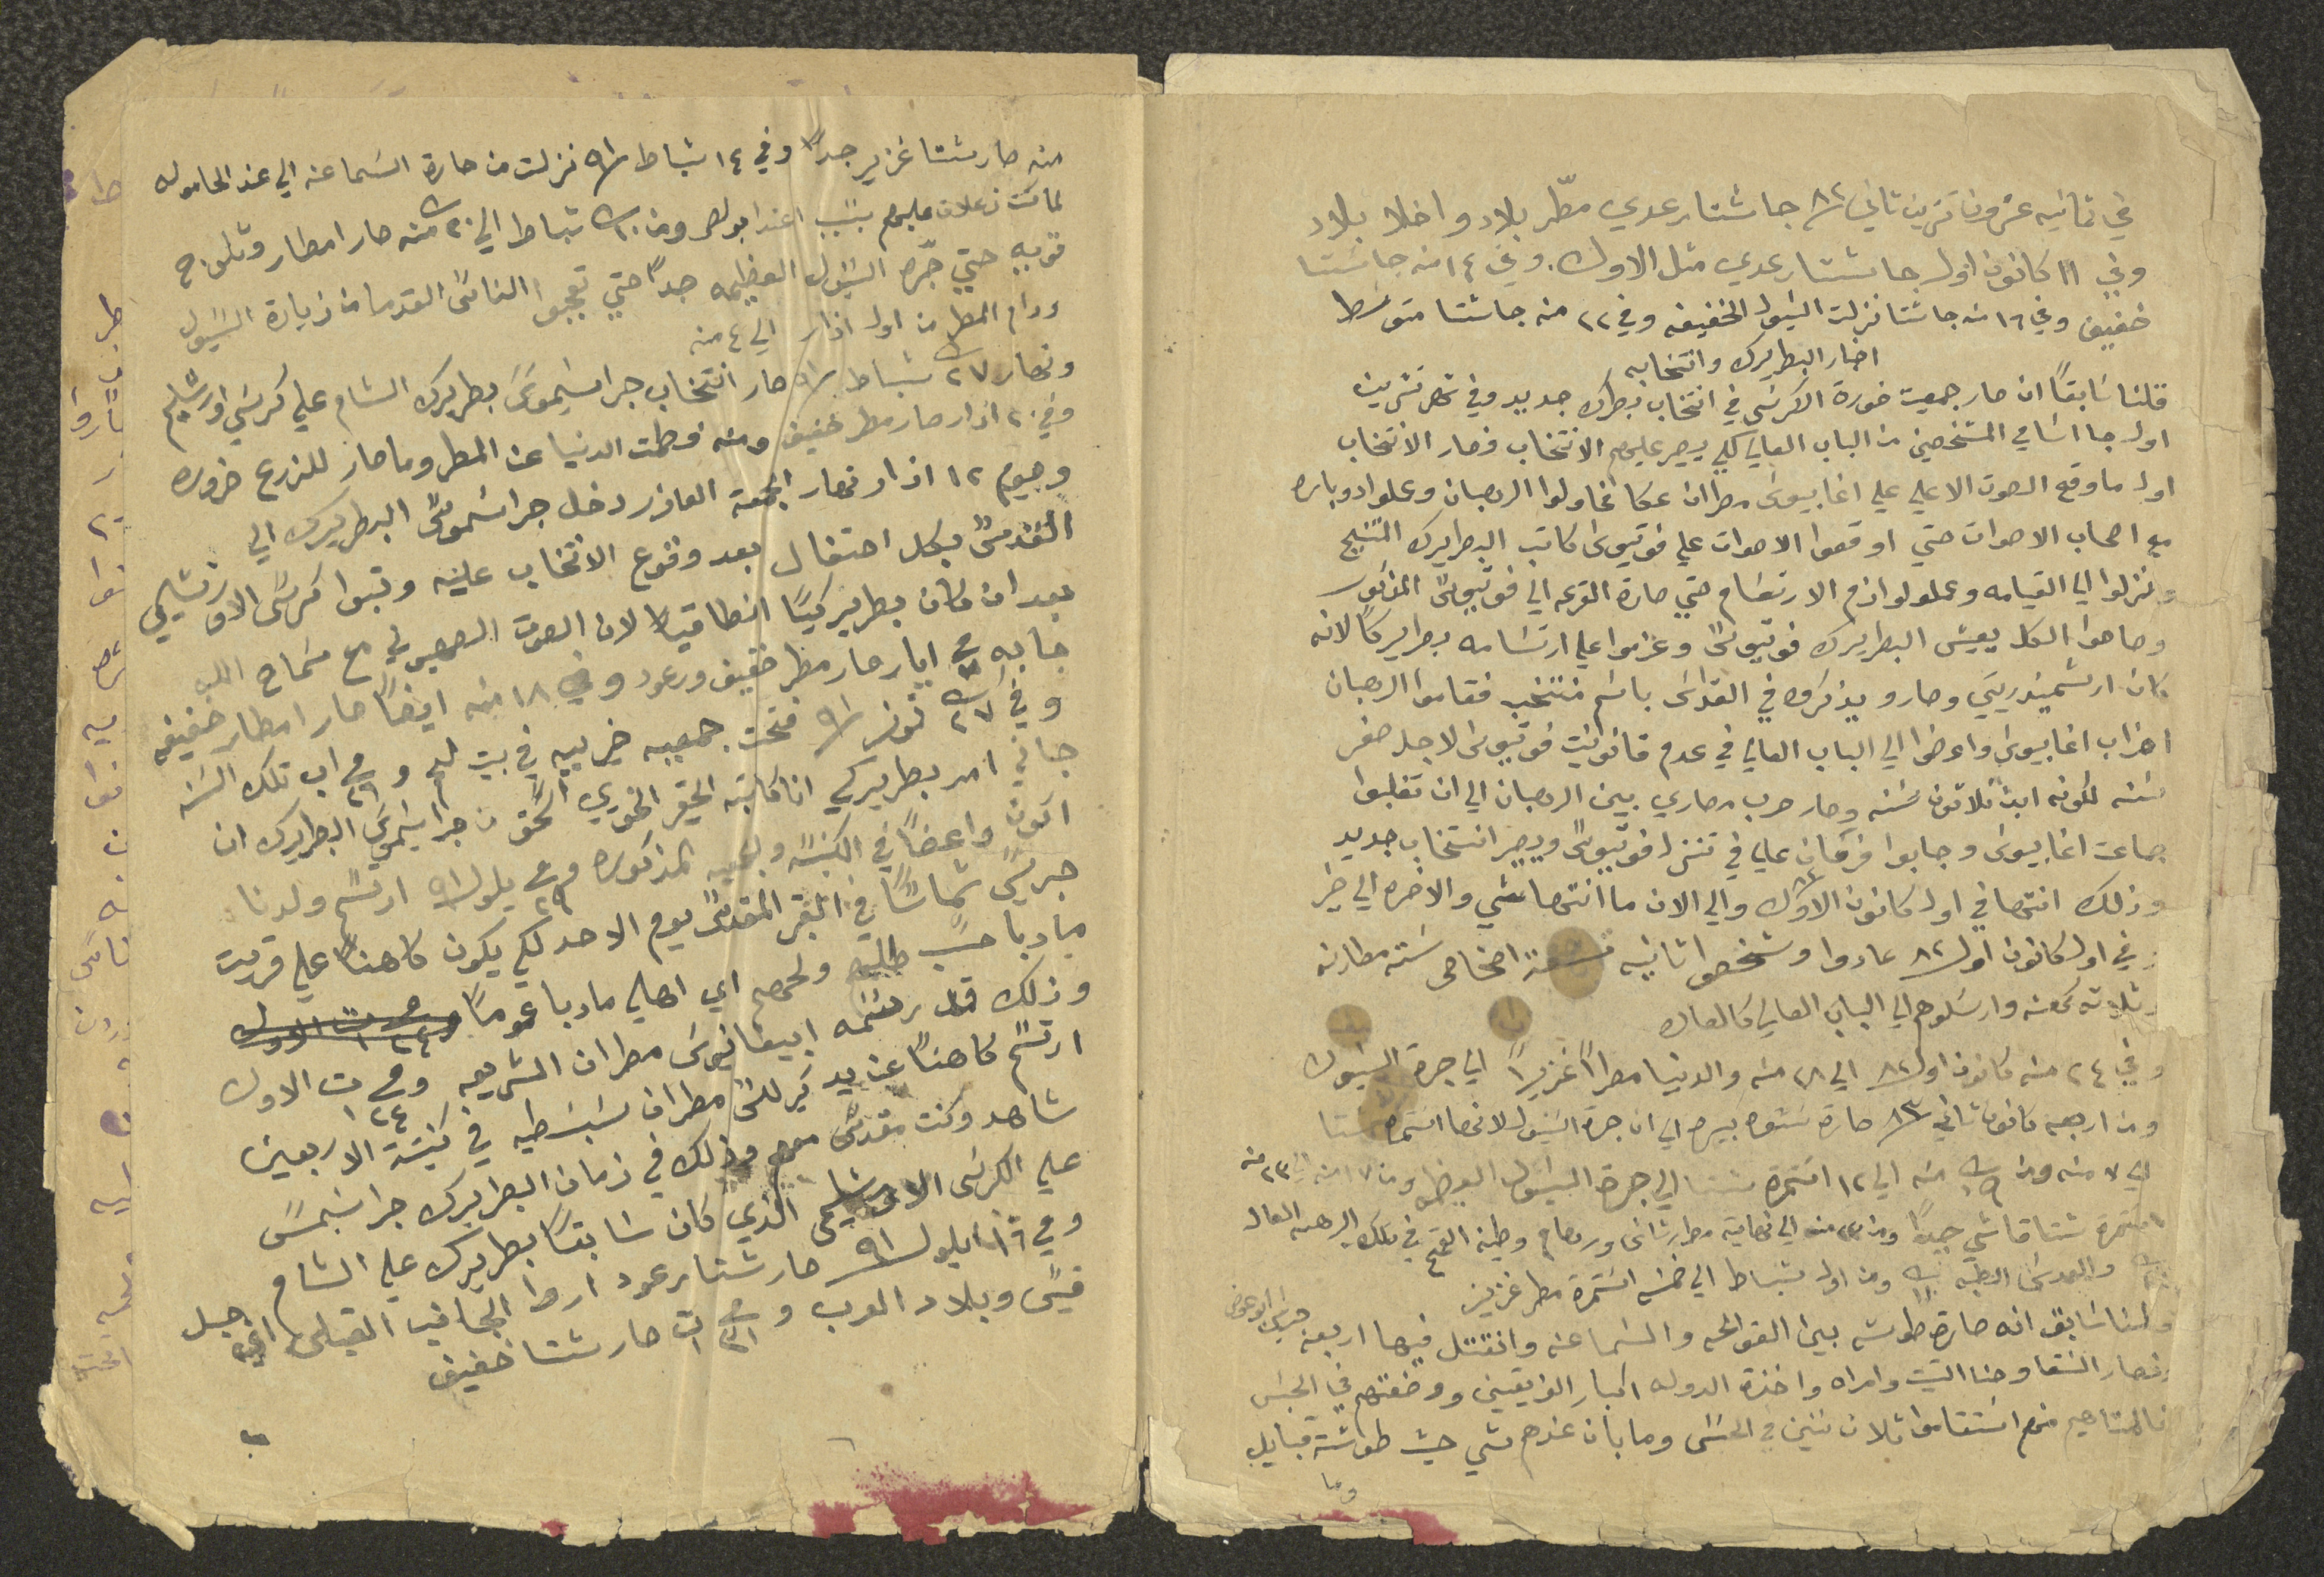 في ثمانيه عشر من تشرين تاني ٨٢ جا شتا رعدي مطّر بلاد واخلا بلاد
وفي ١١ كانون اول جا شتا رعدي مثل الاول. وفي ١٤ منه جا شتا
خفيف وفي ١٦ منه جا شتا نزلت السيول الخفيفه وفي ٢٢ منه جا شتا متوسط
اخبار البطريرك وانتخابه
قلنا سابقاً ان صار جمعيت خورة الكرسي في انتخاب بطرك جديد وفي شهر تشرين
اول جا اسامي المشخصين من الباب العالي لكي يصير عليهم الانتخاب فصار الانتخاب
اول ما وقع الصوت الاعلي علي اغابيوس مطران عكا فحاولوا الرهبان وعملوا دوباره
مع اصحاب الاصوات حتي اوقعوا الاصوات علي فوتيوس كاتب البطريرك المتنيح
ونزلوا الي القيامه وعملو لوازم الارتسام حتي صارة القرعه الي فوتيوس المذكور
وصاحوا الكل يعيش البطريرك فوتيوس وعزموا علي ارتسامه بطريركاً لانه
كان ارشمندريتي وصارو يذكروه في القداس باسم منتخب فقاموا الرهبان
احزاب اغابيوس واعرضوا الي الباب العالي في عدم قانونيت فوتيوس لاجل صغر
سنه لكونه ابن ثلاثون سنه وصار حرب حصاري بين الرهبان الي ان تغلبوا
جماعت اغابيوس وجابوا فرمان عالي في تنزل فوتيوس ويصير انتخاب جديد
وذلك انتها في اول كانون الاول ٨٢ والي الان ما انتها شي والاخره الي خير
وفي اول كانون اول ٨٢ عادوا وشخصوا ثانيه تسعة اشخاص سته مطارنه
وثلاثه كهنه وارسلوهم الي الباب العالي كالعاده
وفي ٢٤ منه كانون اول ٨٢ الي ٢٨ منه والدنيا مطراً غزيراً الي جرة السيول
ومن اربعه كانون ثاني ٨٣ صارة شتوه بيره الي ان جرة السيول لانها استمرة شتا
الي ٧ منه ومن ٩ منه الي ١٢ استمرة شتا الي جرة السيول العظام ومن ١٧ منه الي ٢٣ منه
استمرة شتا قاشي جيداً ومن ٢٣ منه الي نهايته مطر رشاش ورضاح
ومن اول شباط الي خمسه استمرة مطر غزيز
وقلنا سابق انه صارة طوشه بين الفوالحه والسماعنه وانقتل فيها اربعه
نصار السقا وحنا التيت وامراه واخذة الدوله اكبار الفريقين ووضعتهم في الحبس
فالمتاهيم منهم استقاموا ثلاث سنين في الحبس وما بان عندهم شي حيث طوشة قبايل
وما
منه صار شتا غزير جداً وفي ١٤ شباط ٩١ نزلت من حارة السماعنه الي عند الحاموله
لما كنت زعلان عليهم بسبب ومن ١٠ شباط الي ٢٠ منه صار امطار وثلوج
قويه حتي جرّه السيول العظيمه جداً حتي تعجبوا الناس القدما من زيارة السيول
ودام المطر من اول اذار الي ٤ منه
ونهار ٢٧ شباط ٩١ صار انتخاب جراسيموس بطريرك الشام علي كرسي اورشليم
وفي ٢٠ اذار صار مطر خفيف ومنه فطمت الدنيا عن المطر وما صار للزرع ضروره
وبيوم ١٢ اذار نهار الجمعة العازر دخل جراسموس البطريرك الي
القدس بكل احتفال بعد وقوع الانتخاب عليه وتبوا كرسي الاورشليمي
بعد ان كان بطريركيًا انطاقيًا لان الصوت الصهيوني مع سماح الله
جابه وفي ايار صار مطر خفيف ورعود وفي ١٨ منه ايضاً صار امطار خفيفه
وفي ٢٧ تموز ٩١ فتحت جمعيه خيريه في بيت لحم وفي ٢٩ اب تلك السنه
جاني امر بطريركي انا كاتبه الحقير الخوري اسحق من جراسيموس البطريرك ان
اكون واعضاً في الكنيسه والجمعيه المذكوره وفي ٢٩ يلول ٩١ ارتسم ولدنا
جريس شماساً في القبر المقدس يوم الاحد لكي يكون كاهناً علي قريت
مادبا حسب طلبهم ولحهم اي اهالي مادبا عموماً
وذلك قد رسمه ابيفانيوس مطران الشريعه وفي ٢٤ ت الاول
ارتسم كاهناً عن يد كيرللس مطران سبسطيه في كنيسة الاربعين
شاهد وكنت مقدس معهم وذلك في زمان البطريرك جراسيمس
علي الكرسي الاورشليمي الذي كان سابقاً بطريرك علي الشام
وفي ١٦ ايلول ٩١ صار شتا برعود اروا الجانب القبلي اعني جبل
قيس وبلاد العرب وفي ٣١ ت صار شتا خفيف